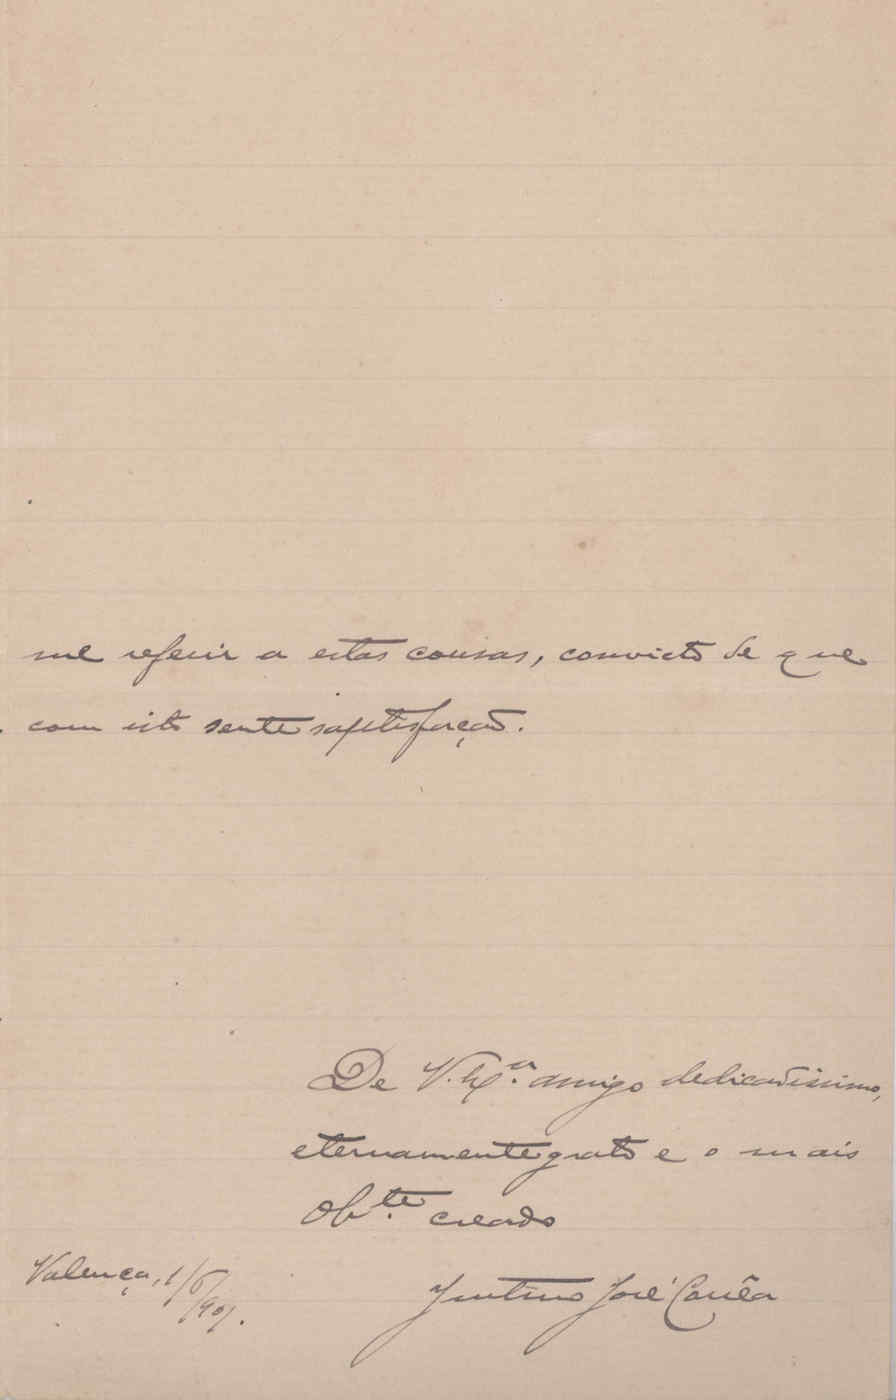 me referir a estas cousas, convicto de que
com isto sente saptisfação.
De V. Ex.ª amigo dedicadissimo,
eternamente grato e o mais
Ob.te creado
Valença, 1/6/901.
José Corrêa